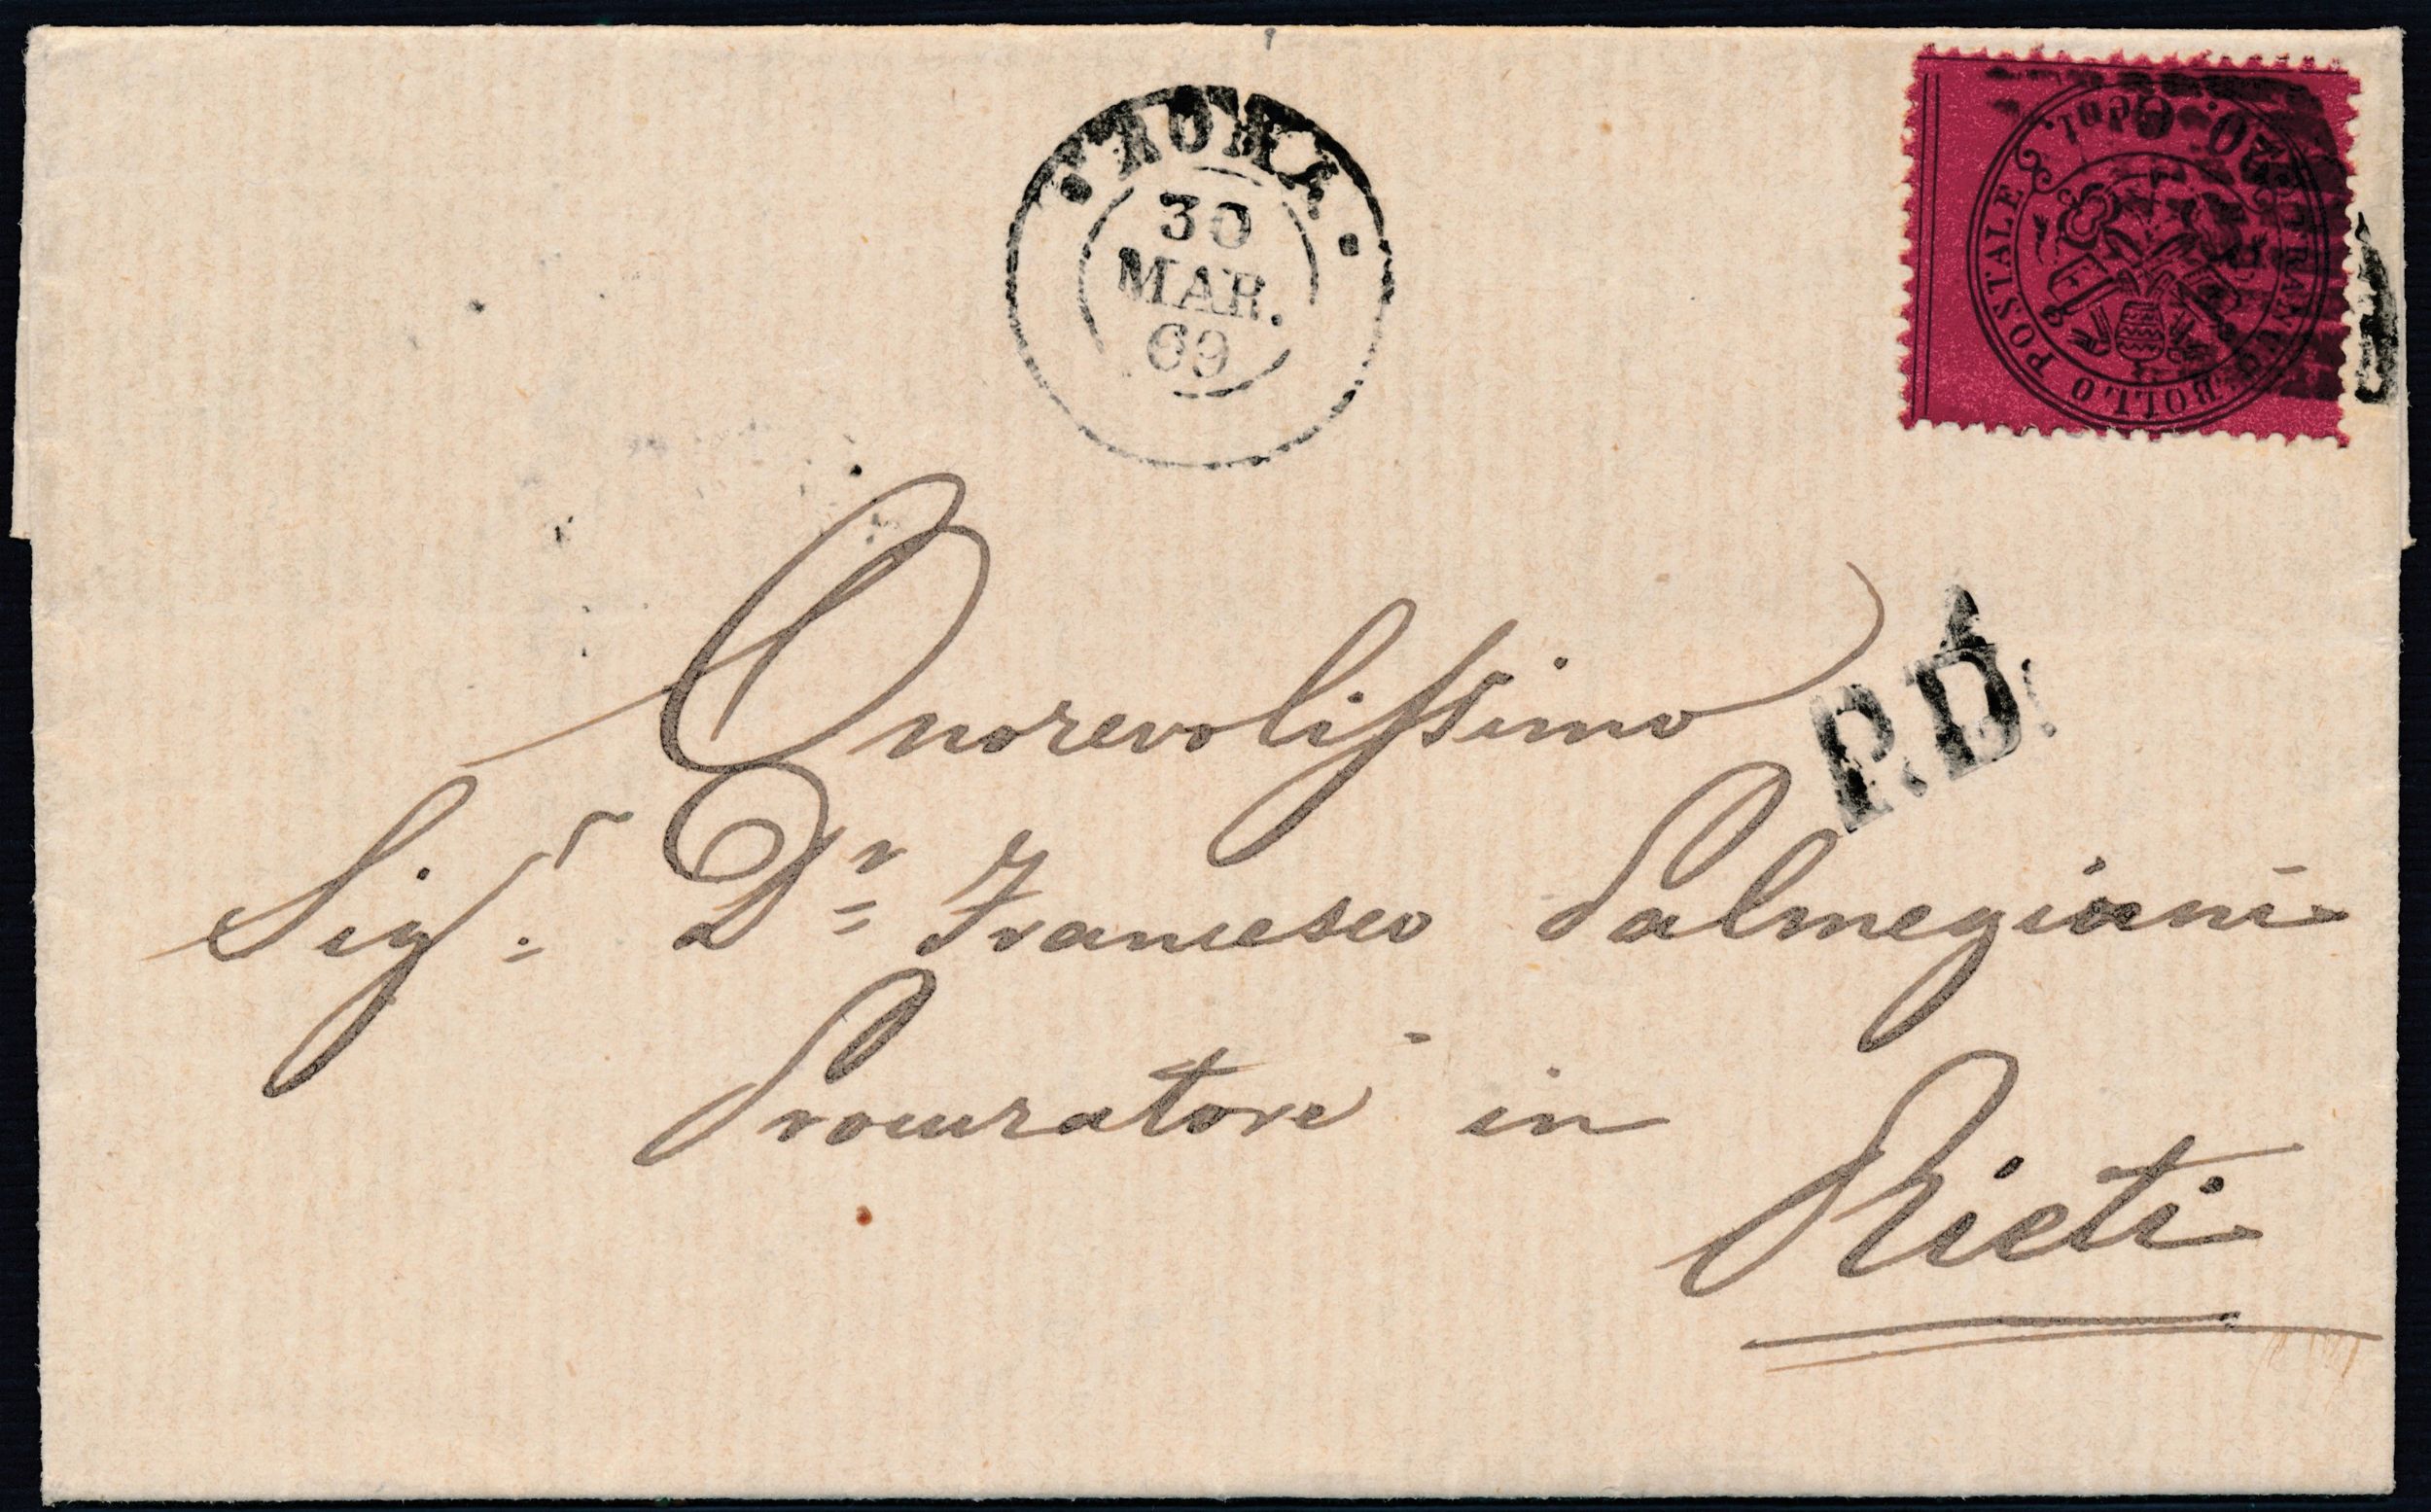 ROMA.
30
MAR.
69
FRANCO BOLLO POSTALE
20. Cent.
P.D.
Onorevolissimo
Sig.r Dr Francesco Palmegiani
Procuratore in
Rieti